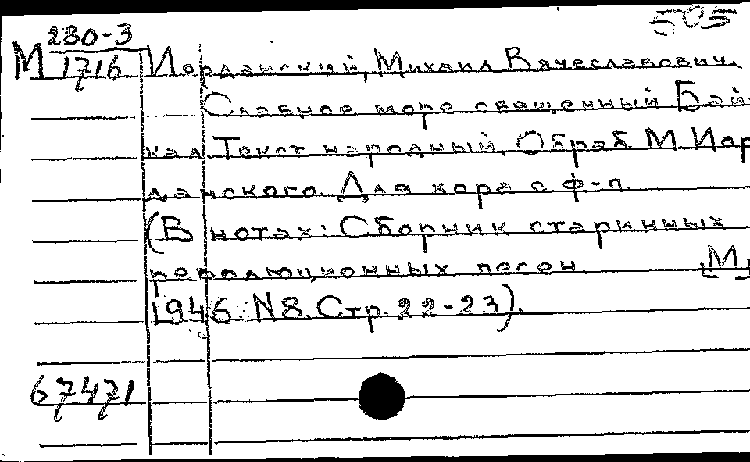 505
М 230-3
1716
Иорданский, Михаил Вячеславович.
Славное море священный Бай-
кал. Текст народный. Обраб. М. Иор-
данского. Для хора с ф-п.
(В нотах: Сборник старинных
революционных песен. [М],
1946. N8. Стр. 22-23).
67471